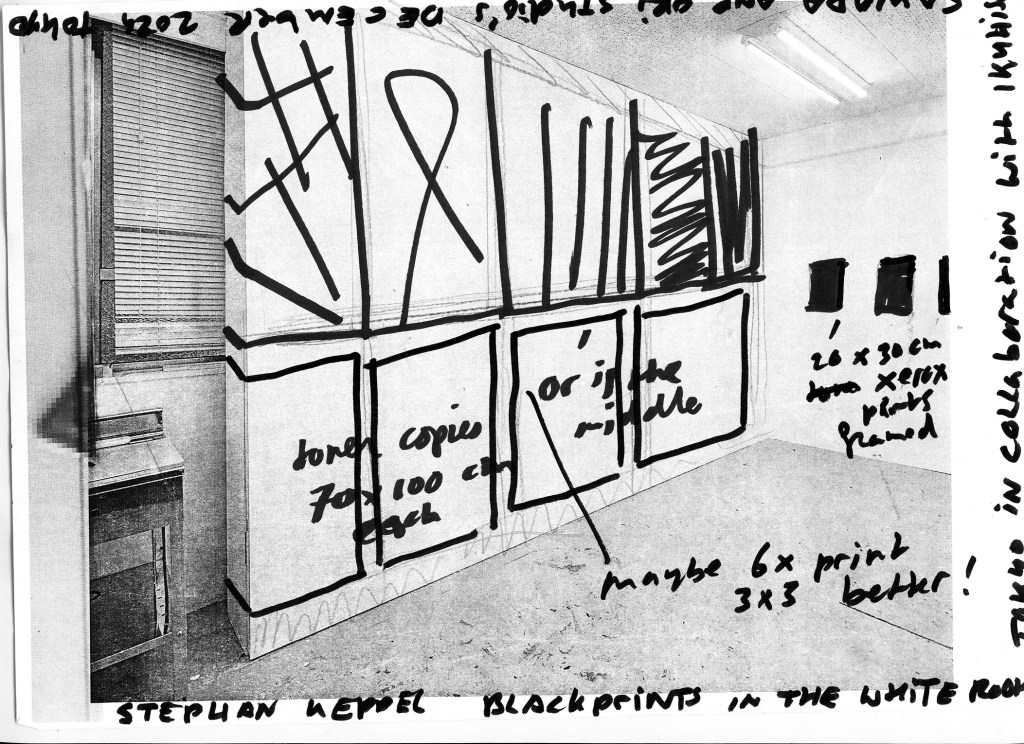 STUDIO'S DECEMBER 2024 TOKYO
TAKHO IN COLLABORATION WITH IKUHI
toner copies
70x100 cm
each
or in the
middle
20 x 30 cm
xerox
prints
framed
maybe 6x print
3x3 better!
STEPHAN KEPPEL BLACKPRINTS IN THE WHITE ROOM